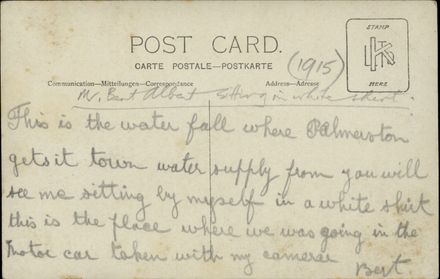 POST CARD.
CARTE POSTALE—POSTKARTE
(1915)
STAMP
HERE
Communication—Mitteilungen—Correspondance
Address—Adresse
Mr. Bert Albert Sitting in white shirt.
This is the water fall where Palmerston
gets it town water supply from you will
see me sitting by myself in a white shirt
this is the place where we was going in the
motor car taken with my camerer
Bert